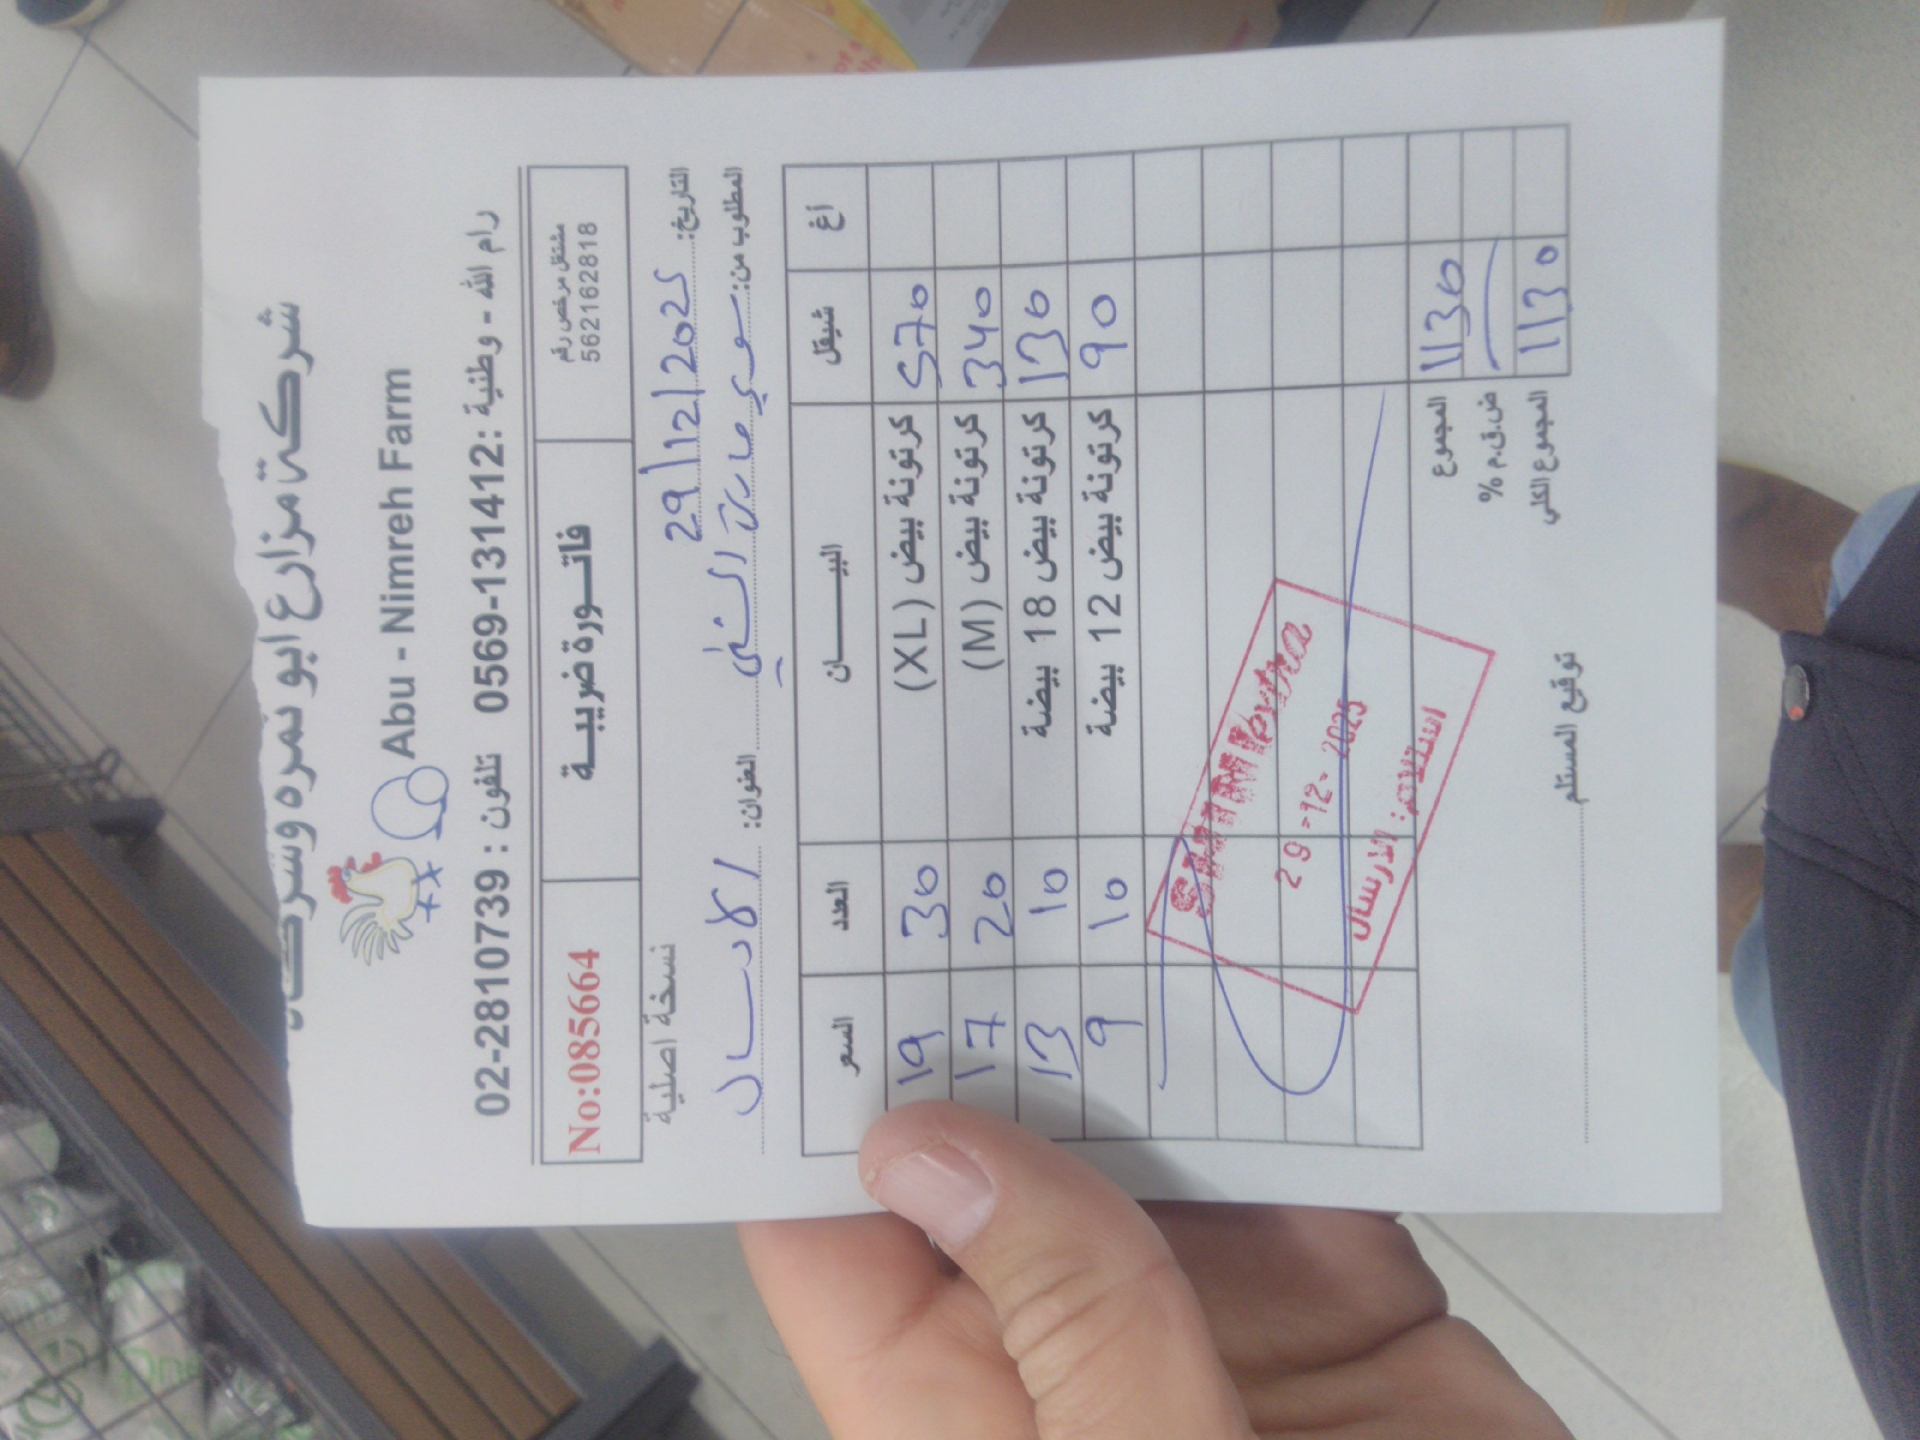 شركة مزارع ابو نمره وشركاه
Abu - Nimreh Farm
رام الله - وطنية : 0569-131412 تلفون : 02-2810739
مشتغل مرخص رقم
562162818
فاتـــورة ضريبيـــة
No:085664
التاريخ: 29/12/2025
نسخة اصلية
المطلوب من: سوبر ماركت الشني
العنوان: الارسال
أغ شيقل البيـــــان العدد السعر
570 كرتونة بيض (XL) 30 19
340 كرتونة بيض (M) 20 17
130 كرتونة بيض 18 بيضة 10 13
90 كرتونة بيض 12 بيضة 10 9
29-12-2025
الارسال
1130 المجموع
ض.ق.م %
1130 المجموع الكلي
توقيع المستلم